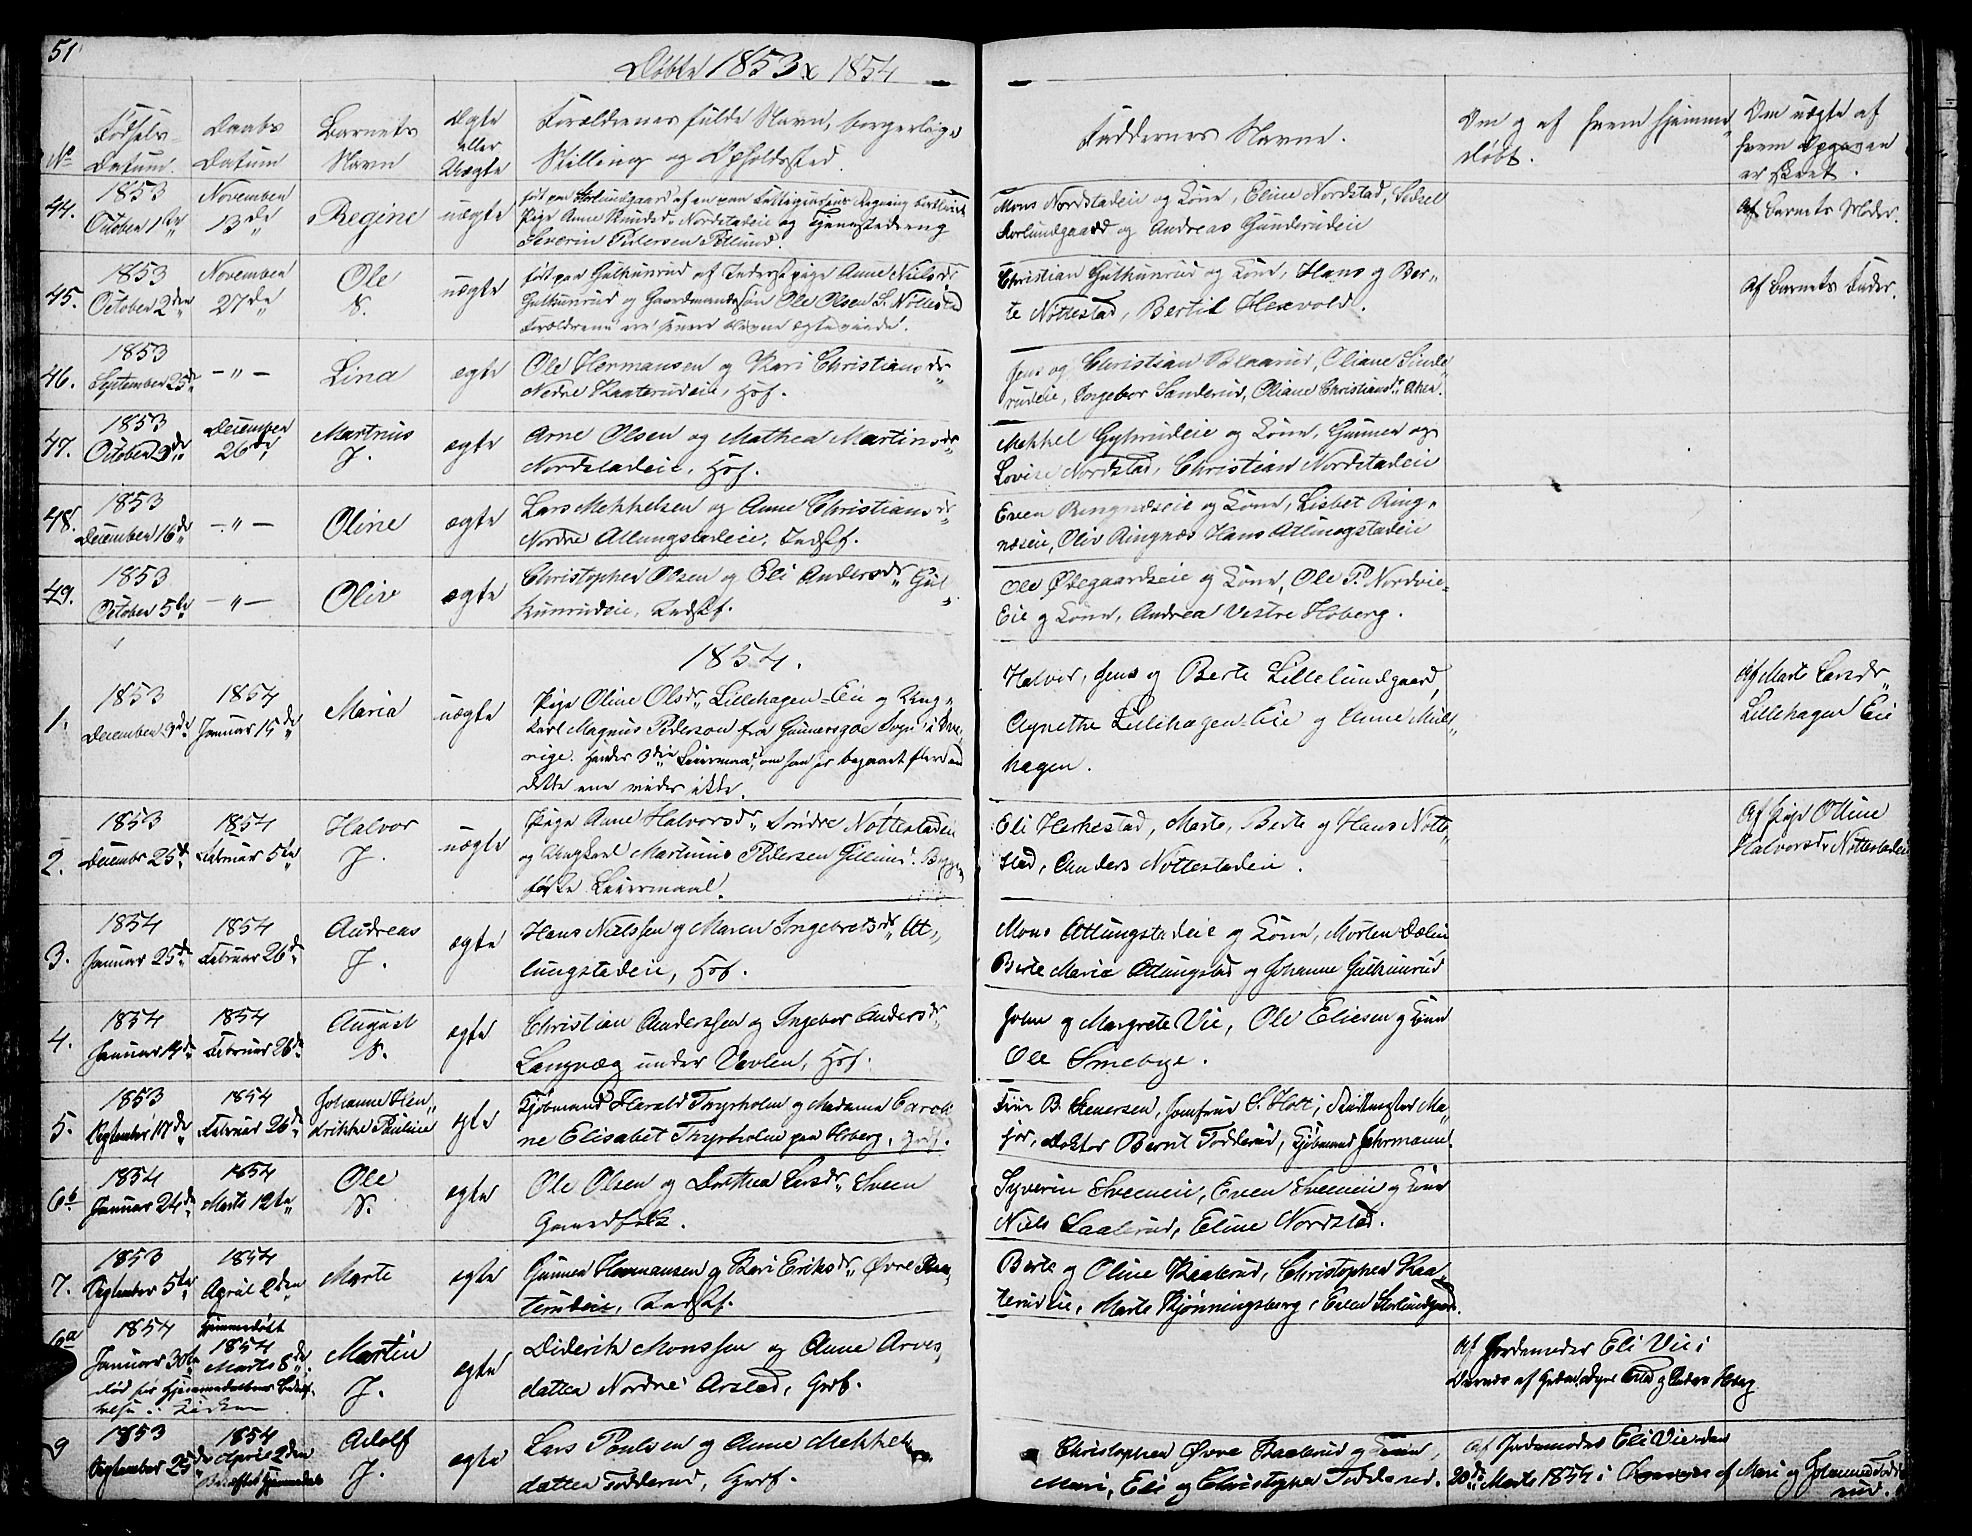 51
Døbte 1853 & 1854
No
Fødsels-
Datum.
Daabs
Datum
Barnets
Navn
Ægte
eller
Uægte
Forældrenes fulde Navn, borgerlige
Stilling og Opholdssted.
Faddernes Navne.
Om og af hvem hjemme
døbt.
Om uægte af
hvem Opgaven
er skeet.
44.
1853
October 1ste
November
13de
Regine
uægte
Pige Anne Knudsdr Nordstadeie og
Severin Pedersen
Mons Nordstadeie og Kone, Eline Nordstad,
og Andreas Gunderudeie
Af Barnets Moder.
45.
1853
October 2den
November
27de
Ole
S.
uægte
født paa Gulhunrud af Inderst pige Anne Nielsdr
Gulhunrud og Gaardmandssøn Ole Olsen S. Nøttestad
Christian Gulhunrud og Kone, Hans og Ber-
te Nøttestad, Bertil Hexvold.
Af Barnets Fader.
46.
1853
September 25de
-"-
Lina
ægte
Ole Hermansen og Kari Christiansdr
Nedre Kaaterudeie, Hof.
Jens og Christian Kaarud, Oliane
rudeie, Ingebor Sanderud, Oliane Christiansdr
47.
1853
October 3de
December
26de
Martinus
J.
ægte
Arne Olsen og Mathea Martinsdr
Nordstadeie, Hof.
Mekkel Gyhrudeie og Kone, Gunner og
Lovise Nordstad, Christian Nordstadeie
48.
1853
December 16de
-"-
Oline
ægte
Lars Mekkelsen og Anne Christiansdr
Nordre Attungstadeie, Indstf.
Even Ringnæseie og Kone, Lisbet Ring-
næseie, Oliv Ringnæs Hans Attungstadeie
49.
1853
October 5te
-"-
Oliv
ægte
Christopher Olsen og Eli Andersdr Gul-
hunrudeie, Indstf.
Ole Ødegaardseie og Kone, Ole P. Nordvie-
Eie og Kone, Andrea Vestre Hoberg.
1854.
1.
1853
December 9de
1854
Januar 15de
Maria
uægte
Pige Oline Olsdr Lillehagen-Eie og Ung-
karl Magnus Pederson fra Gunnersgoe Sogn i Sve-
rige. Hendes 3die Leiermaal, om han har begaaet flere end
dette ene vides ikke.
Halvor, Jens og Berte Lillelundgaard,
Agnethe Lillehagen Eie og Anne Mül-
hagen.
Af Marte Larsdr
Lillehagen Eie
2.
1853
Decembr 25de
1854
Februar 5te
Halvor
J.
uægte
Pige Anne Halvorsdr Søndre Nøttestadeie
og Ungkarl Martinus Pedersen
første Leiermaal.
Eli Herkestad, Marte, Berte og Hans Nøtte-
stad, Anders Nøttestadeie.
Af Pige Oline
Halvorsdr Nøttestadeie
3.
1854
Januar 25de
1854
Februar 26de
Andreas
J.
ægte
Hans Nielssen og Maren Ingebretsdr At-
lungstadeie, Hof.
Mons Attungstadeie og Kone, Morten Dælin
Berte Marie Attungstad og Johanne Gulhunrud
4.
1854
Januar 14de
1854
Februar 26de
August
S.
ægte
Christian Anderssen og Ingebor Andersdr
Langvæg under Vevlen, Hof.
John og Margrete Vie, Ole Eliesen og Kone
Ole Smebye.
5.
1853
September 17de
1854
Februar 26de
Johanne Hen-
drikke Pauline
ægte
Kjøbmand Harald Thyrholm og Madame Caroli-
ne Elisabet Thyrholm paa Hoberg, Grf.
Frue B. Stenersen, Jomfrue S. Holt, Ma-
jor, Doktor Bernt Todderud, Kjøbmand Jehrmann.
6b
1854
Januar 24de
1854
Marts 12te
Ole
S.
ægte
Ole Olsen og Dorthea Larsdr Sveen
Gaardfolk.
Syverin Sveeneie, Even Sveeneie og Kone
Niels Saalerud, Eline Nordstad.
7.
1853
September 5te
1854
April 2den
Marte
ægte
Gunner Hermansen og Kari Eriksdr Øvre Kaa-
terudeie, Indstf.
Berte og Oline Kaaterud, Christopher Kaa-
terudeie, Marte Kjønningsberg, Even Storlundgaard.
6a
1854
Januar 30te
Hjemmedøbt
1854
Marts 8de
Martin
J.
ægte
Diderik Monssen og Anne Arves-
datter Nordre Arstad, Grbf.
Af Jordemoder Eli Vie i
9
1853
September 25de
1854
April 2den
Adolf
J.
ægte
Lars Poulsen og Anne Mekkels-
datter Todderud, Grbf.
Christopher Øvre Kaaterud og Kone,
Mari, Eli og Christopher Todderud.
Af Jordemoder Eli Vie den
20de Marts 1854 i af Mari og Johannes Todde-
rud.